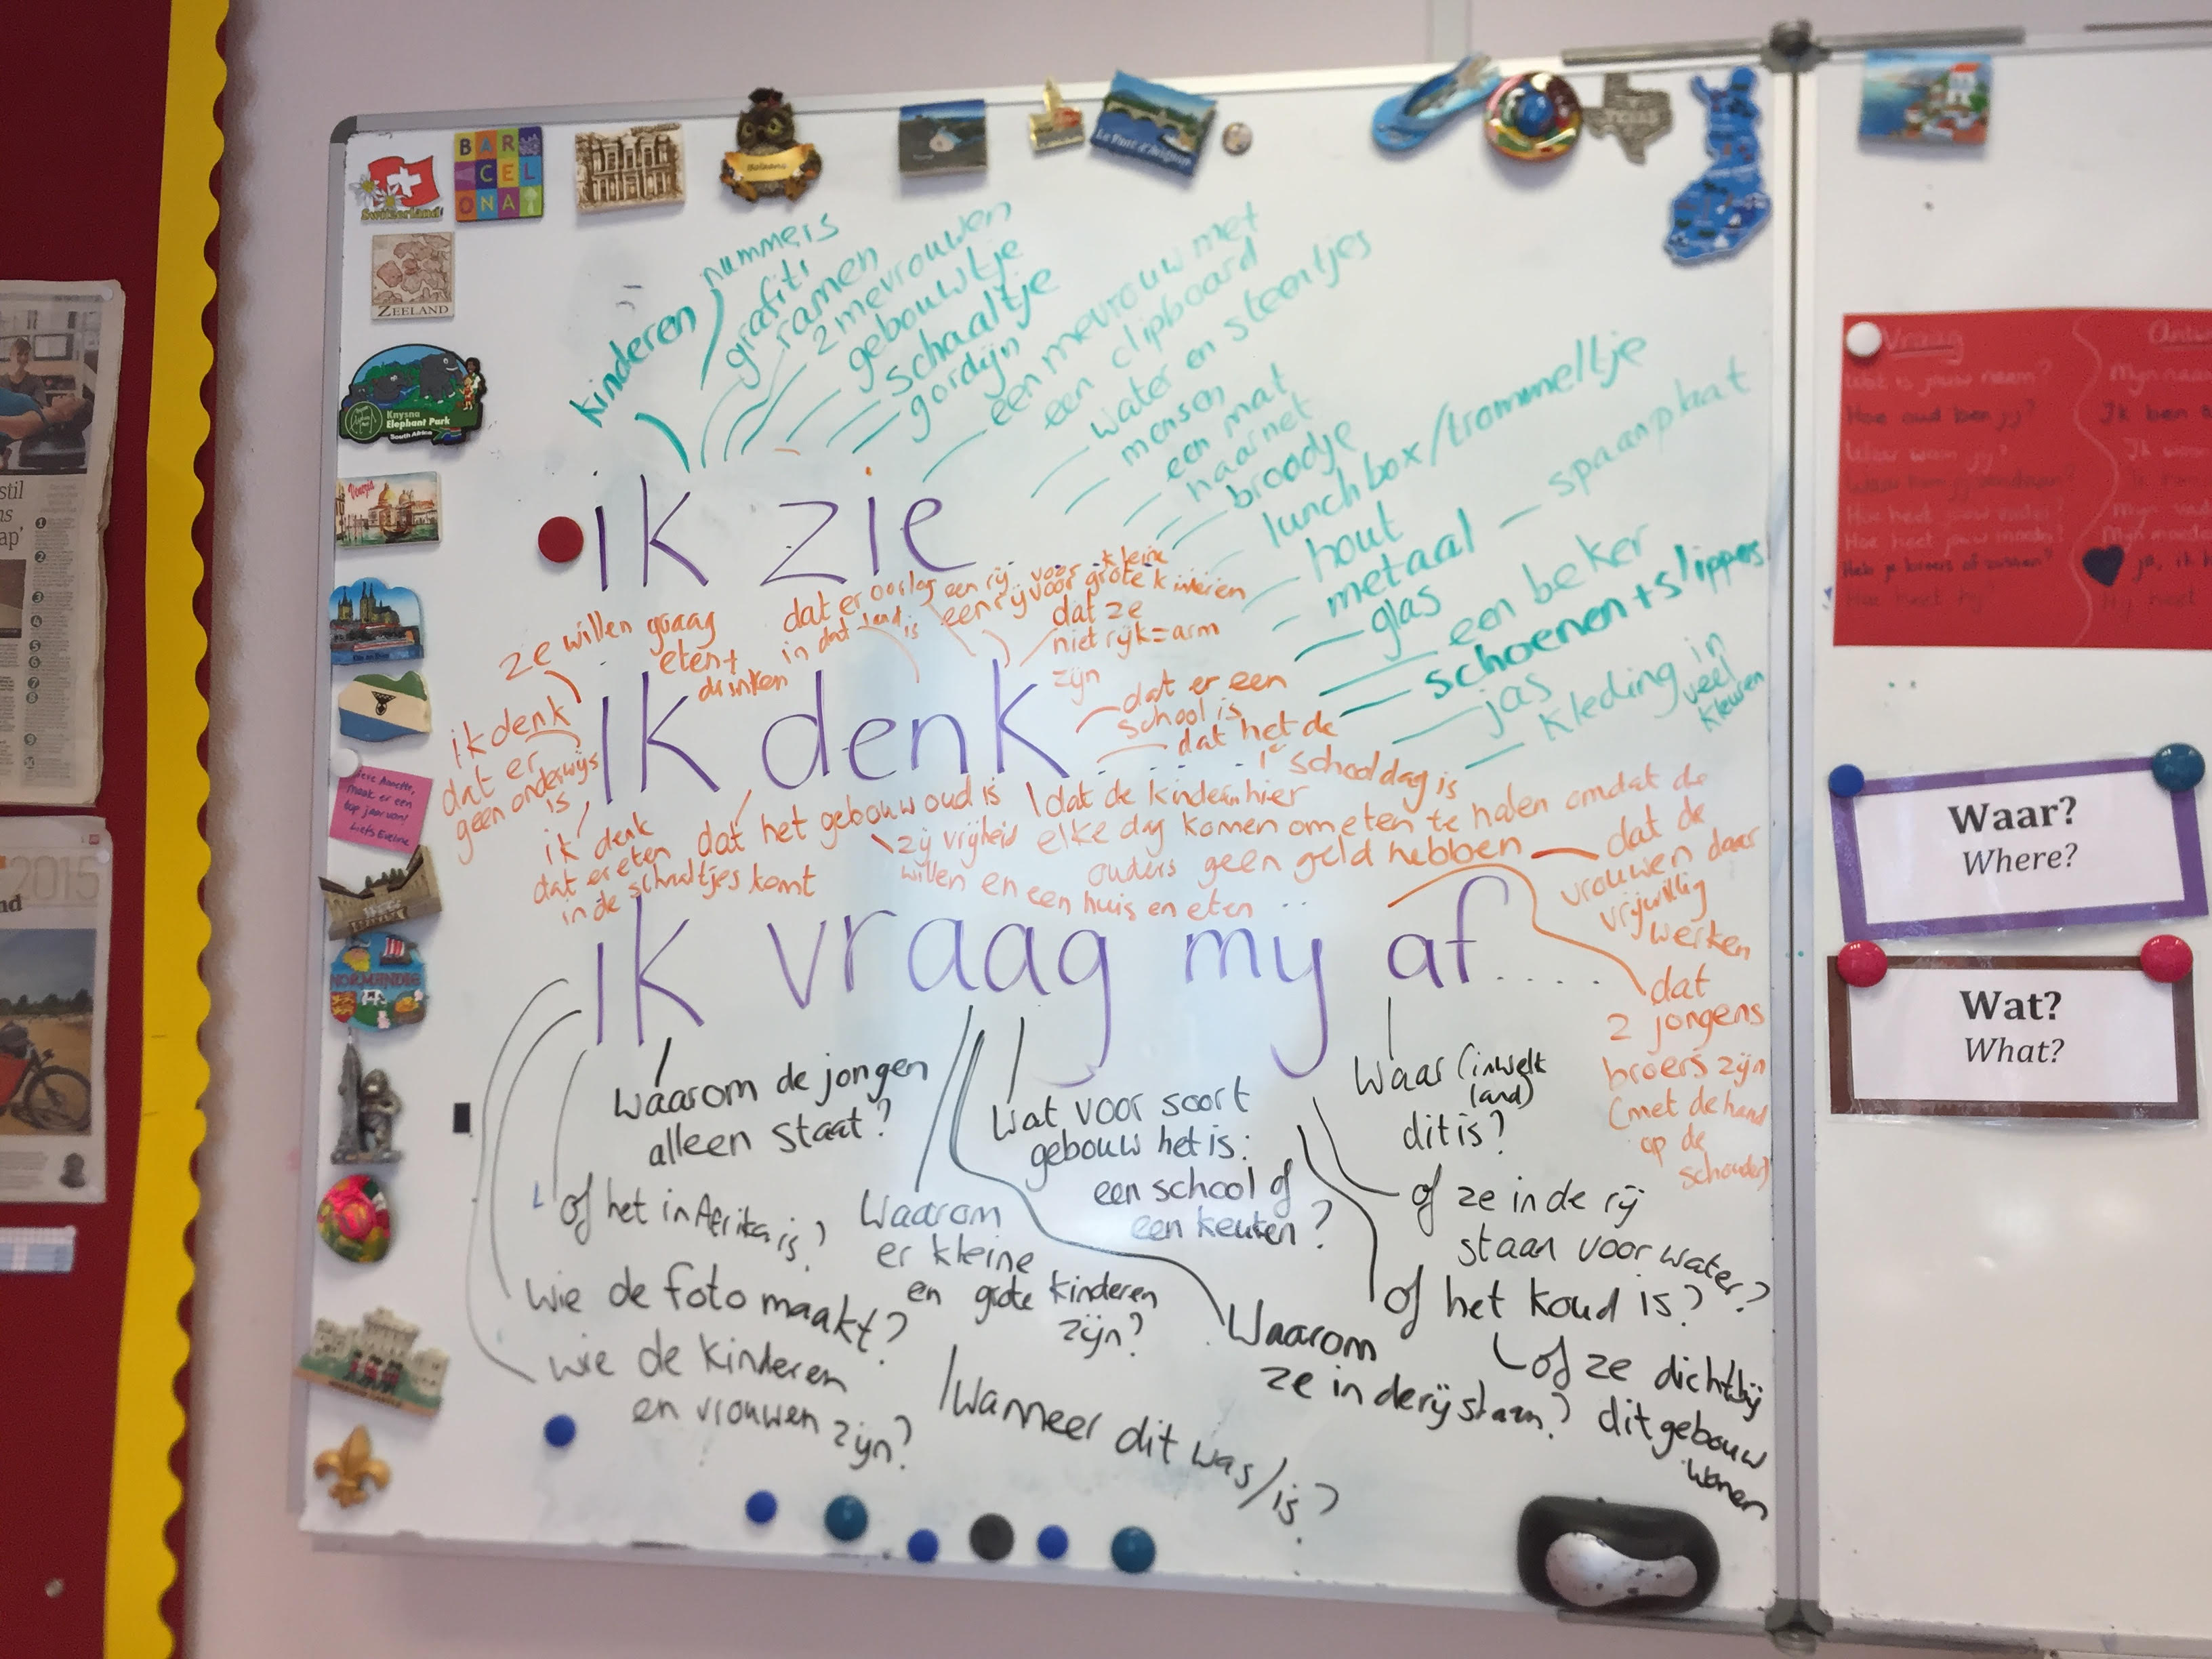 Switzerland
BAR
CEL
ONA
Le Pont d'Avignon
TEXAS
ZEELAND
Knysna
Elephant Park
South Africa
Venezia
NORMANDIE
stil
ap'
2015
nd
Lieve Annette,
maak er een
top jaar van!
Liefs Eveline
kinderen
nummers
grafiti
ramen
2 mevrouwen
gebouwtje
schaaltje
gordijn
een mevrouw met
een clipboard
water en steentjes
mensen
een mat
haarnet
broodje
lunchbox/trommeltje
hout
metaal — spaanplaat
glas
een beker
schoenen + slippers
jas
kleding in
veel
kleuren
ik zie
ze willen graag
eten +
drinken
dat er oorlog
in dat land is
een rij voor kleine
een rij voor grote kinderen
dat ze
niet rijk = arm
zijn
dat er een
school is
dat het de
1e schooldag is
ik denk
ik denk
dat er
geen onderwijs
is
ik denk
dat er eten
in de schaaltjes komt
dat het gebouw oud is
dat de kinderen hier
elke dag komen om eten te halen omdat de
ouders geen geld hebben
zij vrijheid
willen en een huis en eten
dat de
vrouwen daar
vrijwillig
werken
dat
2 jongens
broers zijn
(met de hand
op de
schouder)
ik vraag mij af....
Waarom de jongen
alleen staat?
of het in Afrika is?
wie de foto maakt?
wie de kinderen
en vrouwen zijn?
Waarom
er kleine
en grote kinderen
zijn?
Wanneer dit was/is?
Wat voor soort
gebouw het is:
een school of
een keuken?
Waarom
ze in de rij staan?
Waar (in welk
land)
dit is?
of ze in de rij
staan voor water?
of het koud is?
of ze dichtbij
dit gebouw
wonen
Vraag
Wat is jouw naam?
Hoe oud ben jij?
Waar woon jij?
Hoe heet jouw vader?
Hoe heet jouw moeder?
Heb je broers of zussen?
Hoe heet hij?
Mijn naam
Ik ben
Ik woon
Mijn moeder
ja, ik h
Hij heet
Waar?
Where?
Wat?
What?